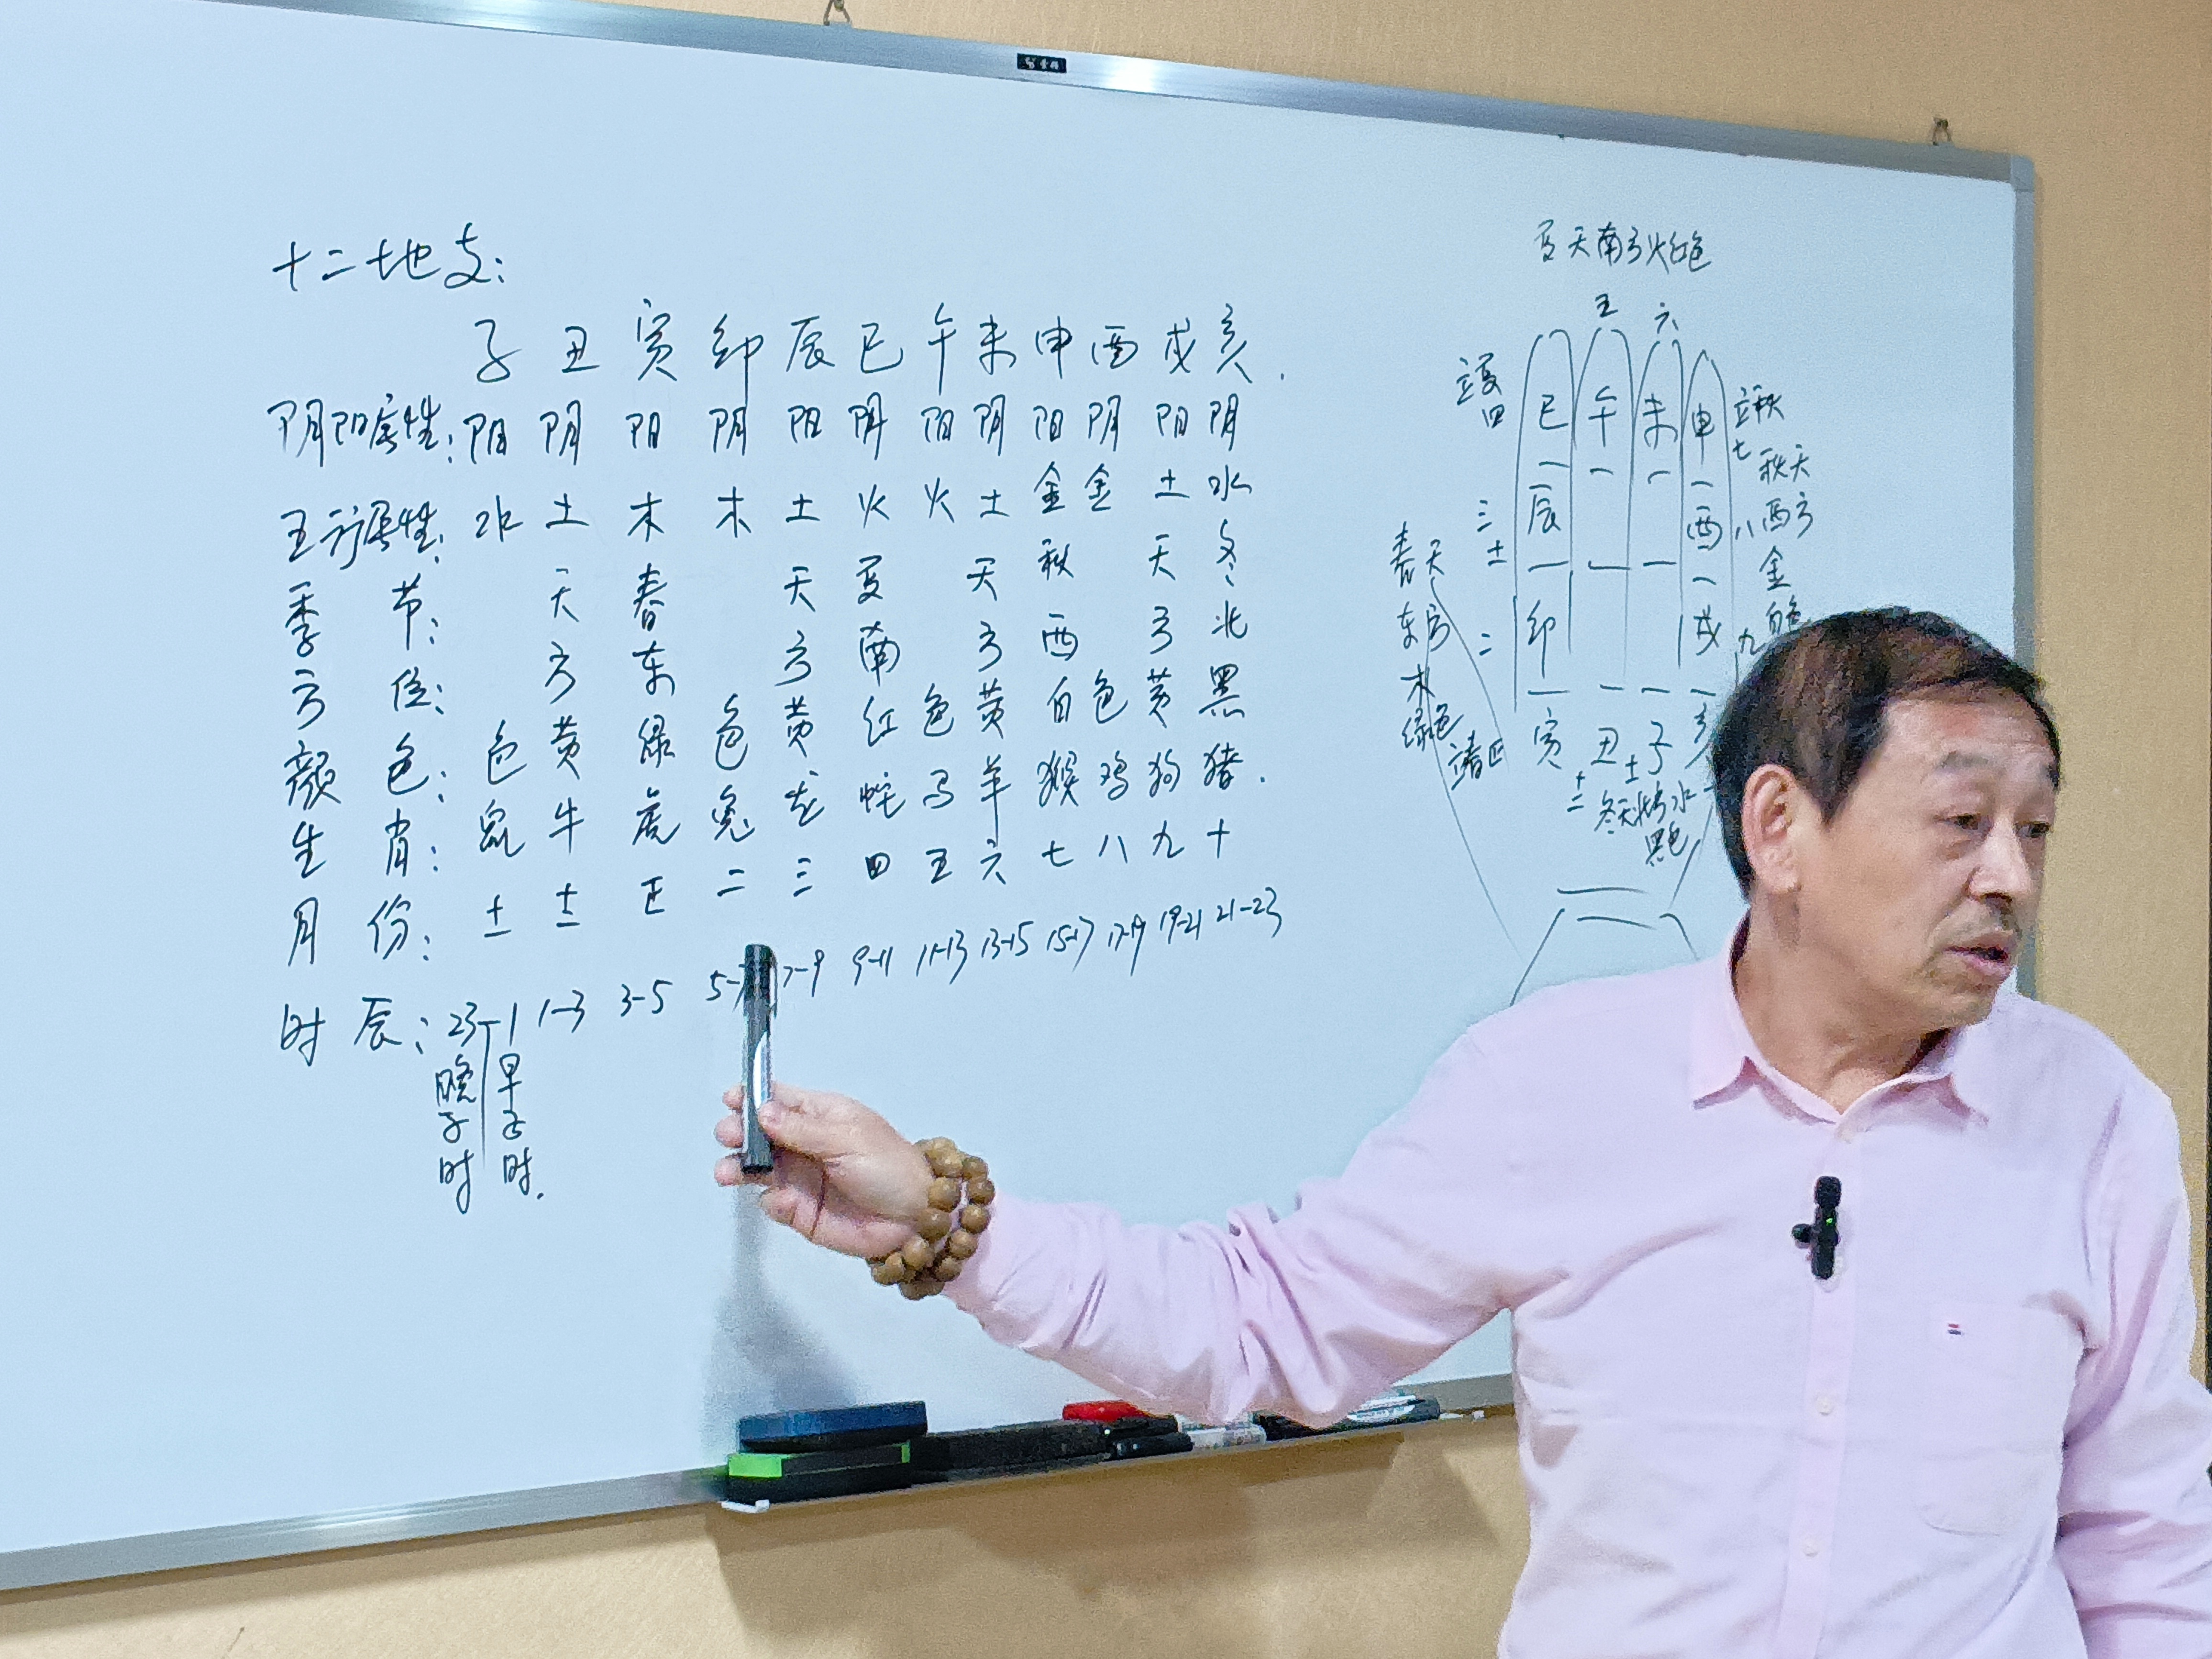 十二地支：
子 丑 寅 卯 辰 巳 午 未 申 酉 戌 亥.
阴阳属性：阳 阴 阳 阴 阳 阴 阳 阴 阳 阴 阳 阴
五行属性：水 土 木 木 土 火 火 土 金 金 土 水
季 节： 天 春 天 夏 天 秋 天 冬
方 位： 方 东 方 南 方 西 方 北
颜 色：色 黄 绿 色 黄 红 色 黄 白 色 黄 黑
生 肖：鼠 牛 虎 兔 龙 蛇 马 羊 猴 鸡 狗 猪.
月 份：十一 十二 正 二 三 四 五 六 七 八 九 十
时 辰：23-1 1-3 3-5 5-7 7-9 9-11 11-13 13-15 15-17 17-19 19-21 21-23
晚子时
早子时.
夏天南方火红色
五 六
立夏
四
巳 午 未 申
立秋
七
秋天
西方
金
白色
三
辰 酉
八
春天
东方
木
绿色
二
卯 戌
九
立春
寅 丑 子 亥
十二 十一
冬天北方水
黑色